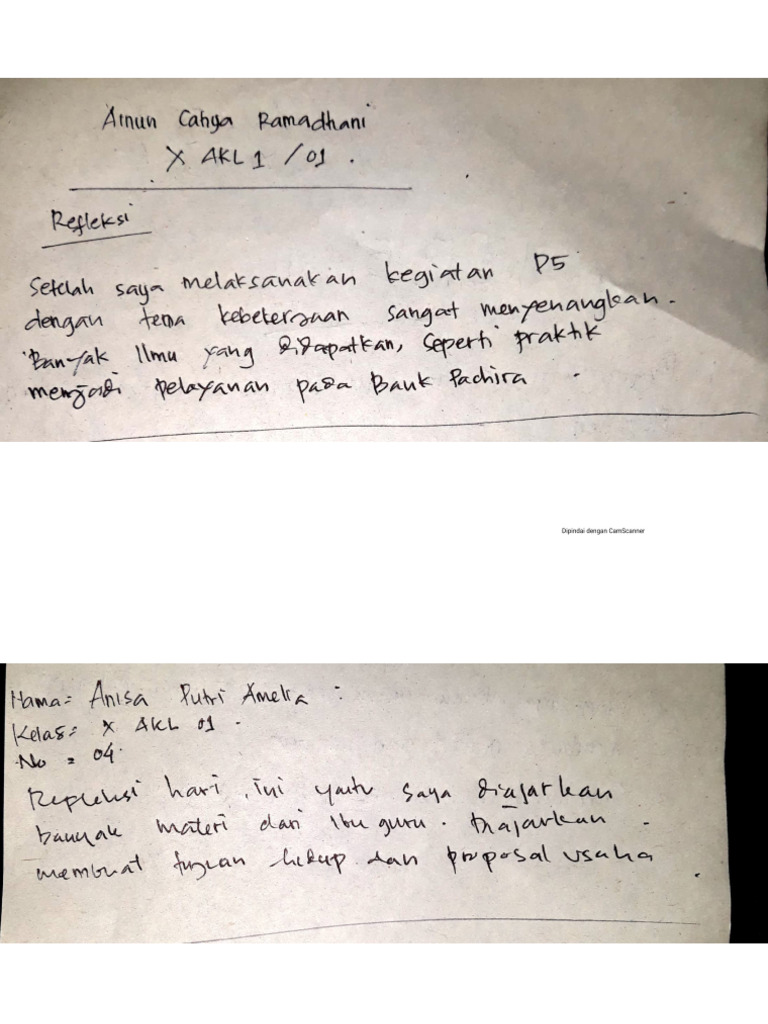 Ainun Cahya Ramadhani
X AKL 1 / 01 .
Refleksi
Setelah saya melaksanakan kegiatan P5
dengan tema kebekerjaan sangat menyenangkan.
Banyak Ilmu yang didapatkan, Seperti praktik
menjadi pelayanan pada Bank Pachira .
Dipindai dengan CamScanner
Nama = Anisa Putri Amelia :
Kelas = X AKL 01 .
No = 04.
Repleksi hari ini yaitu saya diajarkan
banyak materi dari Ibu guru. Diajarkan
membuat tujuan hidup dan proposal usaha .